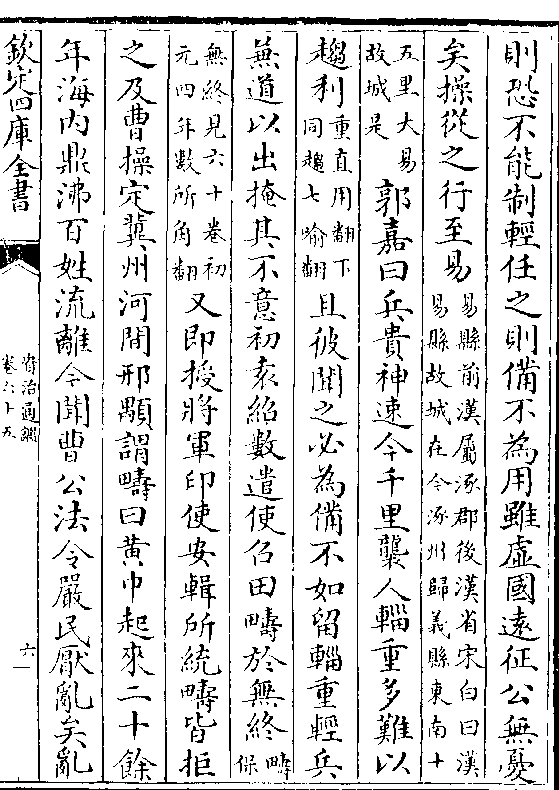 則恐不能制輕任之則備不為用雖虛國遠征公無憂
矣操從之行至易
易縣前漢屬涿郡後漢省宋白曰漢
易縣故城在今涿州歸義縣東南十
五里大易
故城是
郭嘉曰兵貴神速今千里襲人輜重多難以
趨利
重直用翻下
同趨七喻翻
且彼聞之必為備不如留輜重輕兵
兼道以出掩其不意初袁紹數遣使召田疇於無終
疇保
無終見六十卷初
元四年數所角翻
又即授將軍印使安輯所統疇皆拒
之及曹操定冀州河間邢顒謂疇曰黄巾起來二十餘
年海内鼎沸百姓流離今聞曹公法令嚴民厭亂矣亂
欽定四庫全書
資治通鑑
卷六十五
六